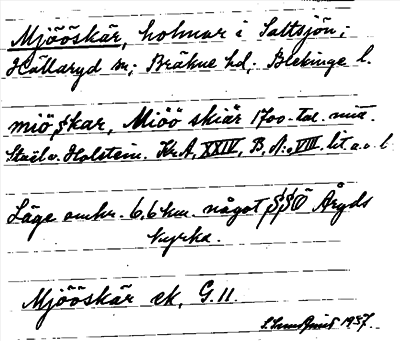 Mjööskär, holmar i Saltsjön;
Hällaryd sn; Bräkne hd; Blekinge l.
miö skar, Miöö skiär 1700-tal. mitt.
Staël v. Holstein. Kr.A, XXIV, B, A:, VIII. lit. a. o. b
Läge omkr. 6.6 km. något SSÖ Åryds
kyrka.
Mjööskär ek, G.11.
1937.